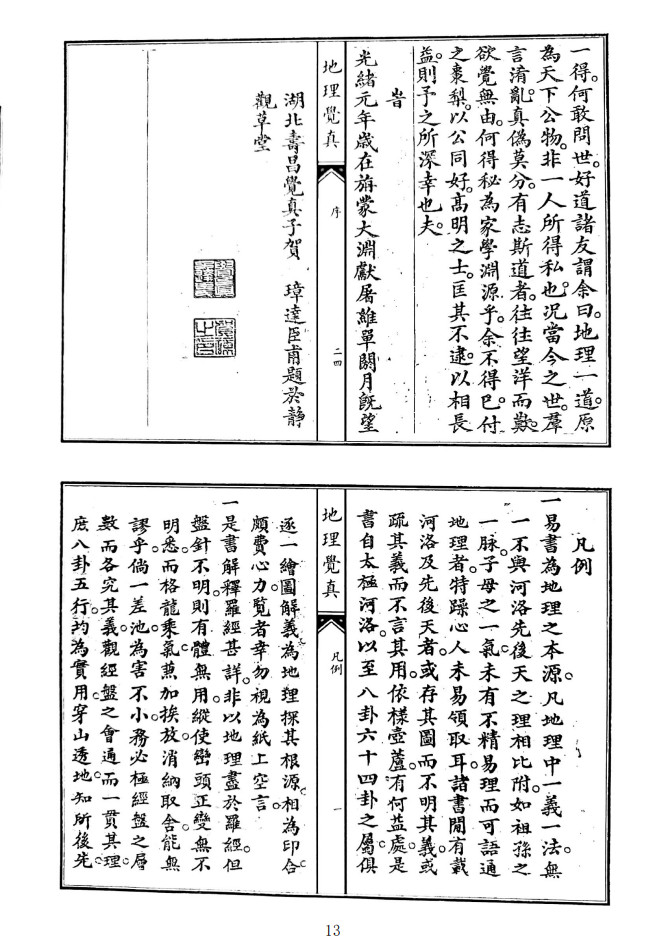 一得。何敢問世。好道諸友謂余曰。地理一道。原
為天下公物。非一人所得私也。況當今之世。羣
言淆亂。真偽莫分。有志斯道者。往往望洋而歎。
欲覺無由。何得秘為家學淵源乎。余不得已付
之棗梨。以公同好。高明之士。匡其不逮。以相長
益。則予之所深幸也夫。
旹
光緒元年歲在旃蒙大淵獻屠維單閼月旣望
地理覺真
序
二四
湖北壽昌覺真子賀 璋達臣甫題於靜
觀草堂
凡例
一易書為地理之本源。凡地理中一義一法。無
一不與河洛先後天之理相比附。如祖孫之
一脉。子母之一氣。未有不精易理而可語通
地理者。特躁心人未易領取耳。諸書閒有載
河洛及先後天者。或存其圖而不明其義。或
疏其義而不言其用。依樣壺蘆。有何益處。是
書自太極河洛。以至八卦六十四卦之屬。俱
地理覺真
凡例
一
逐一繪圖解義。為地理探其根源。相為印合。
頗費心力。覽者幸勿視為紙上空言。
一是書解釋羅經甚詳。非以地理盡於羅經。但
盤針不明。則有體無用。縱使巒頭正變無不
明悉。而格龍乘氣。兼加挨放。消納取舍。能無
謬乎。倘一差池。為害不小。務必極經盤之層
數而各究其義。觀經盤之會通而一貫其理。
庶八卦五行。均為實用。穿山透地。知所後先。
13